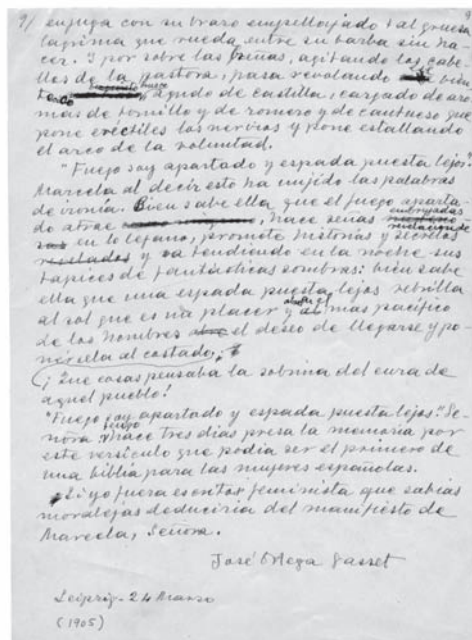 9/ enjuga con su brazo empellejado tal gruesa
lagrima que rueda entre su barba sin ha
cer. Y por sobre las peñas, agitando los cabe-
llos de la pastora, pasa revolando
agudo de castilla, cargado de aro
mas de tomillo y de romero y de cantueso que
pone eréctiles los nervios y pone estallando
el arco de la voluntad.
"Fuego soy apartado y espada puesta lejos".
Marcela al decir esto ha unjido las palabras
de ironía. Bien sabe ella que el fuego aparta-
do atrae, hace señas embrujadas
en lo lejano, promete historias y secretos
y va tendiendo en la noche sus
tapices de fantásticas sombras: bien sabe
ella que una espada puesta lejos rebrilla
al sol que es un placer y mas pacífico
de los hombres el deseo de llegarse y po-
nersela al costado.
¡Que cosas pensaba la sobrina del cura de
aquel pueblo!
"Fuego soy apartado y espada puesta lejos". Se-
ñora: tengo hace tres dias presa la memoria por
este versículo que podía ser el primero de
una biblia para las mujeres españolas.
Si yo fuera escritor feminista que sabias
moralejas deduciria del manifiesto de
Marcela, Señora.
José Ortega Gasset
Leipzig - 24 Marzo
(1905)